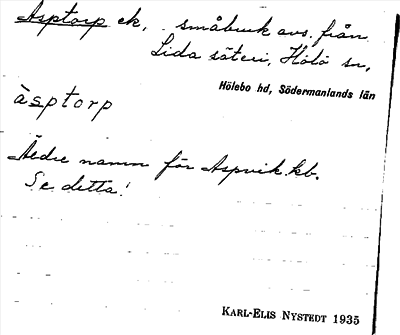 Asptorp ek, småbruk avs. från
Lida säteri, Hölö sn,
Hölebo hd, Södermanlands län
àsptorp
Äldre namn för Aspvik. kb.
Se detta!
KARL-ELIS NYSTEDT 1935